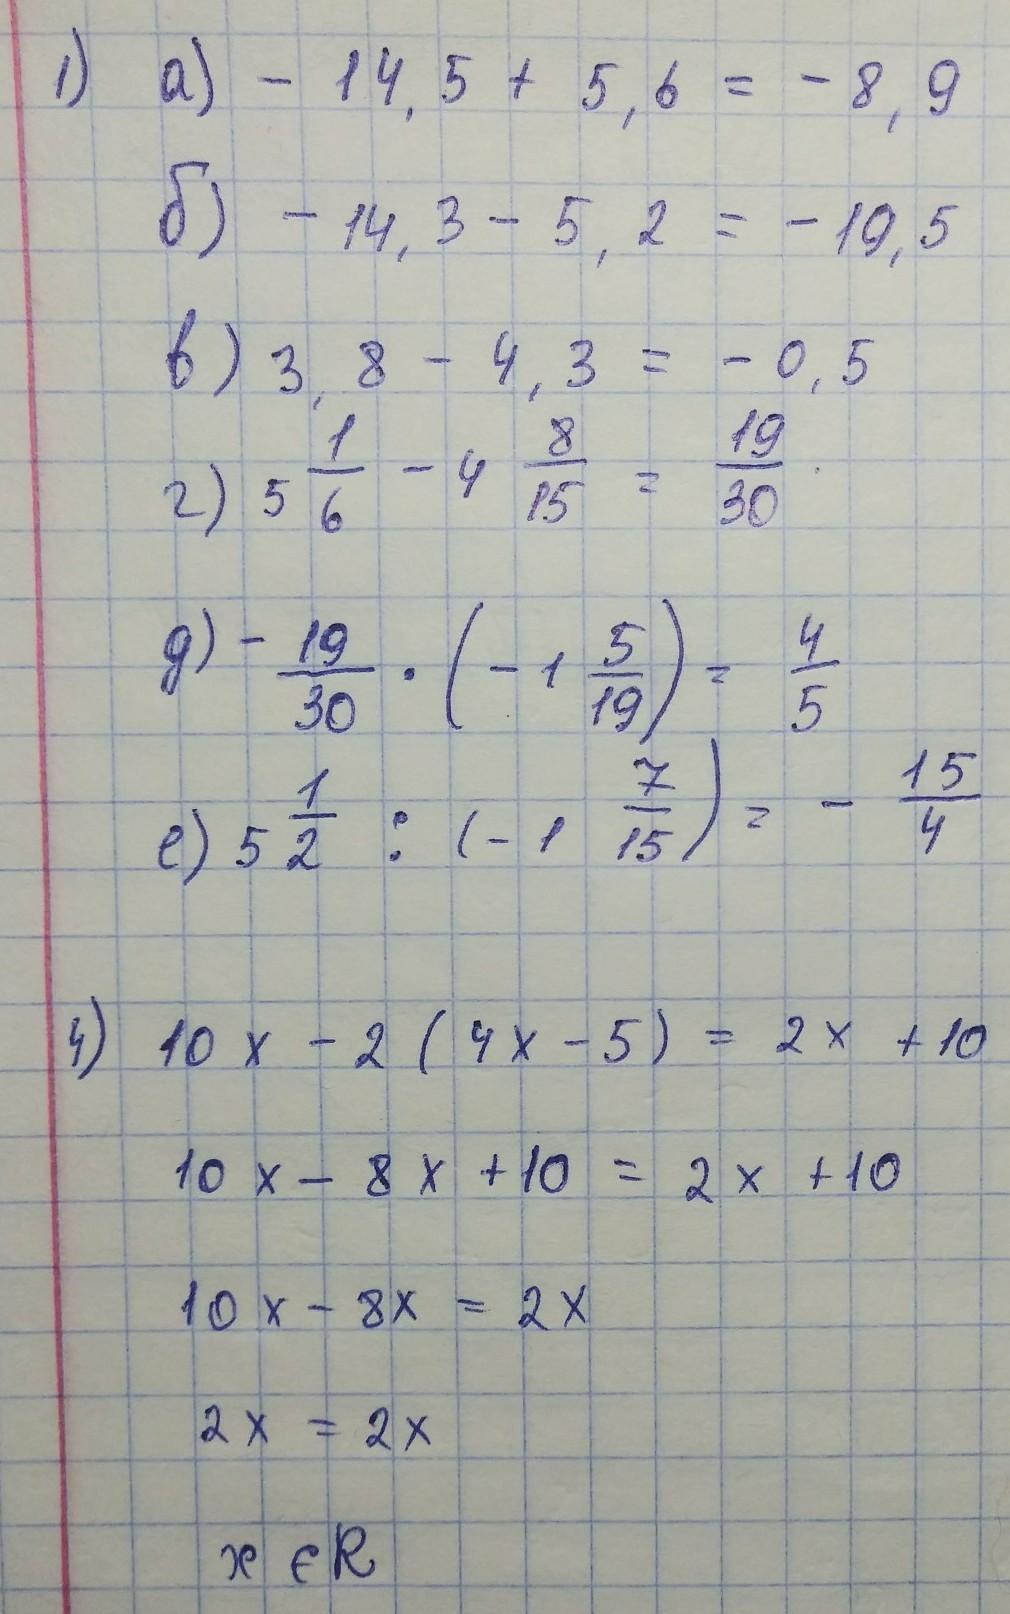 1) а) - 14,5 + 5,6 = - 8,9
б) - 14,3 - 5,2 = - 19,5
в) 3,8 - 4,3 = - 0,5
г) 5 1/6 - 4 8/15 = 19/30
д) - 19/30 · (- 1 5/19) = 4/5
е) 5 1/2 : (- 1 7/15) = - 15/4
4) 10x - 2(4x - 5) = 2x + 10
10x - 8x + 10 = 2x + 10
10x - 8x = 2x
2x = 2x
x ∈ R